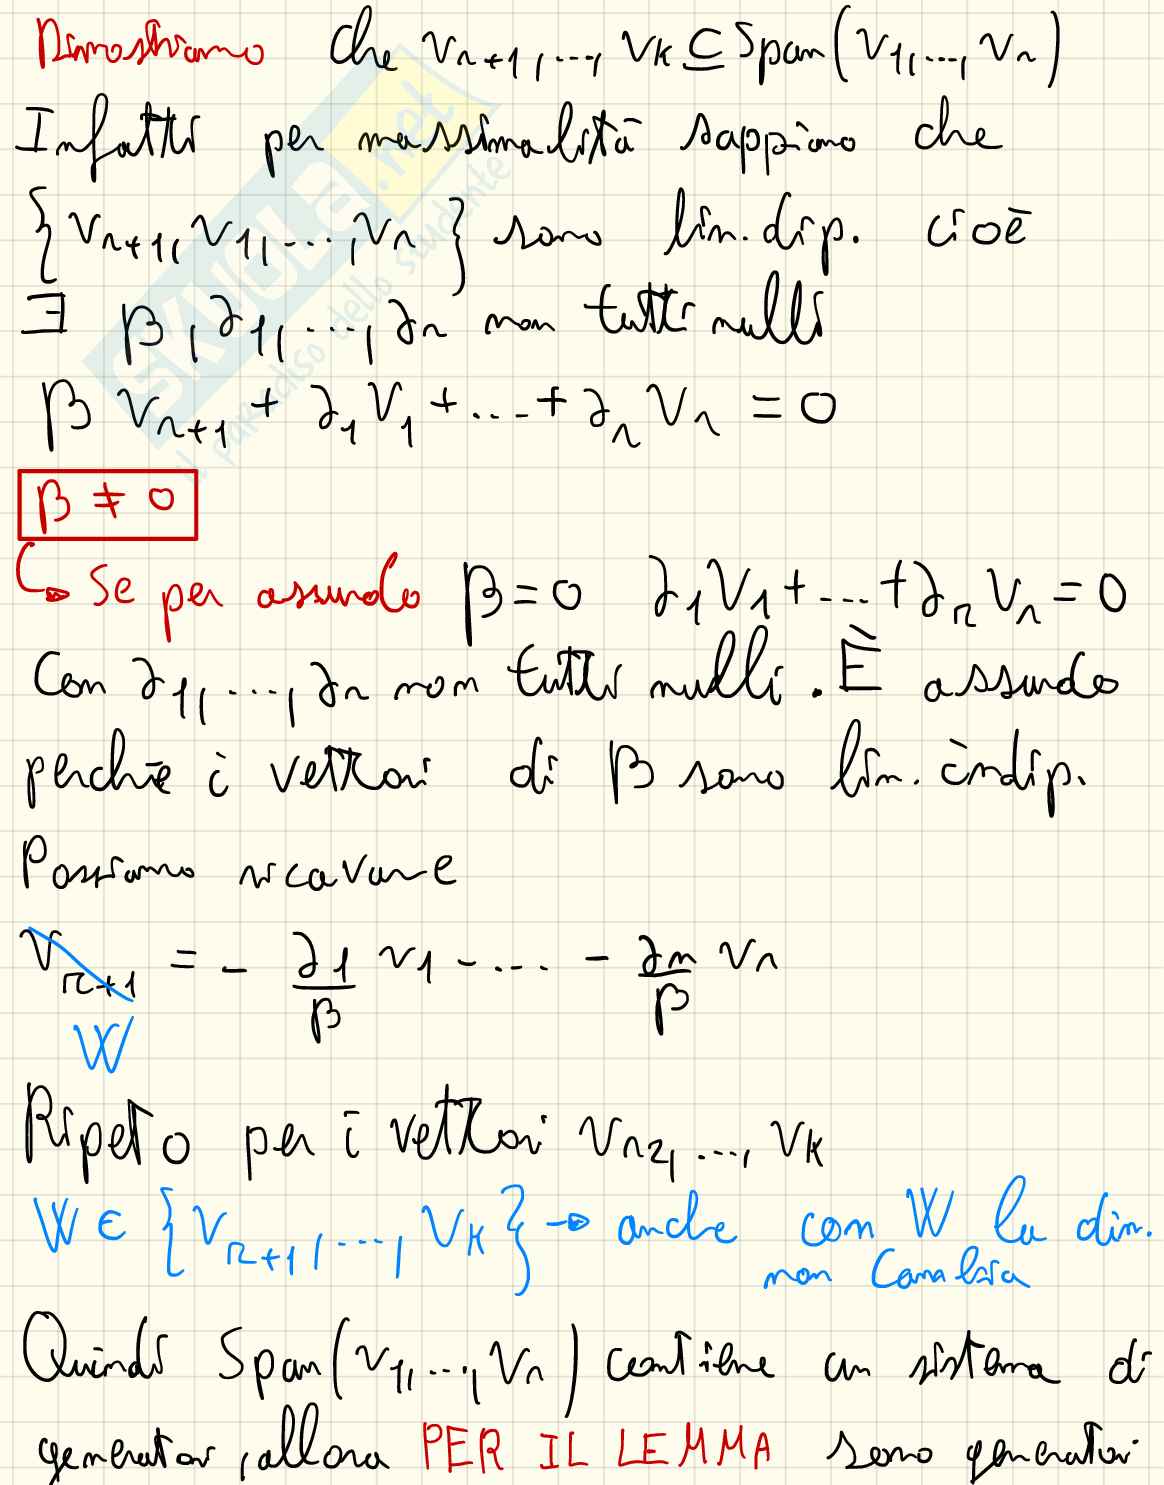 Dimostriamo che v_{r+1}, ..., v_k ⊆ Span(v_1, ..., v_r)
Infatti per massimalità sappiamo che
{v_{r+1}, v_1, ..., v_r} sono lin. dip. cioè
∃ β, ∂_1, ..., ∂_r non tutti nulli
β v_{r+1} + ∂_1 v_1 + ... + ∂_r v_r = 0
β ≠ 0
↳ Se per assurdo β = 0 ∂_1 v_1 + ... + ∂_r v_r = 0
Con ∂_1, ..., ∂_r non tutti nulli. È assurdo
perchè i vettori di β sono lin. indip.
Possiamo ricavare
v_{r+1} = - ∂_1/β v_1 - .... - ∂_n/β v_r
W
Ripeto per i vettori v_{r2}, ..., v_k
W ∈ {v_{r+1}, ..., v_k} → anche con W la dim.
non cambia
Quindi Span(v_1, ..., v_r) contiene un sistema di
generatori, allora PER IL LEMMA sono generatori
SKUOLA.net
il paradiso dello studente